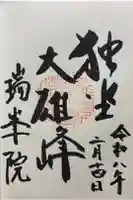 独坐
大雄峰
令和八年
二月 日
瑞峯院